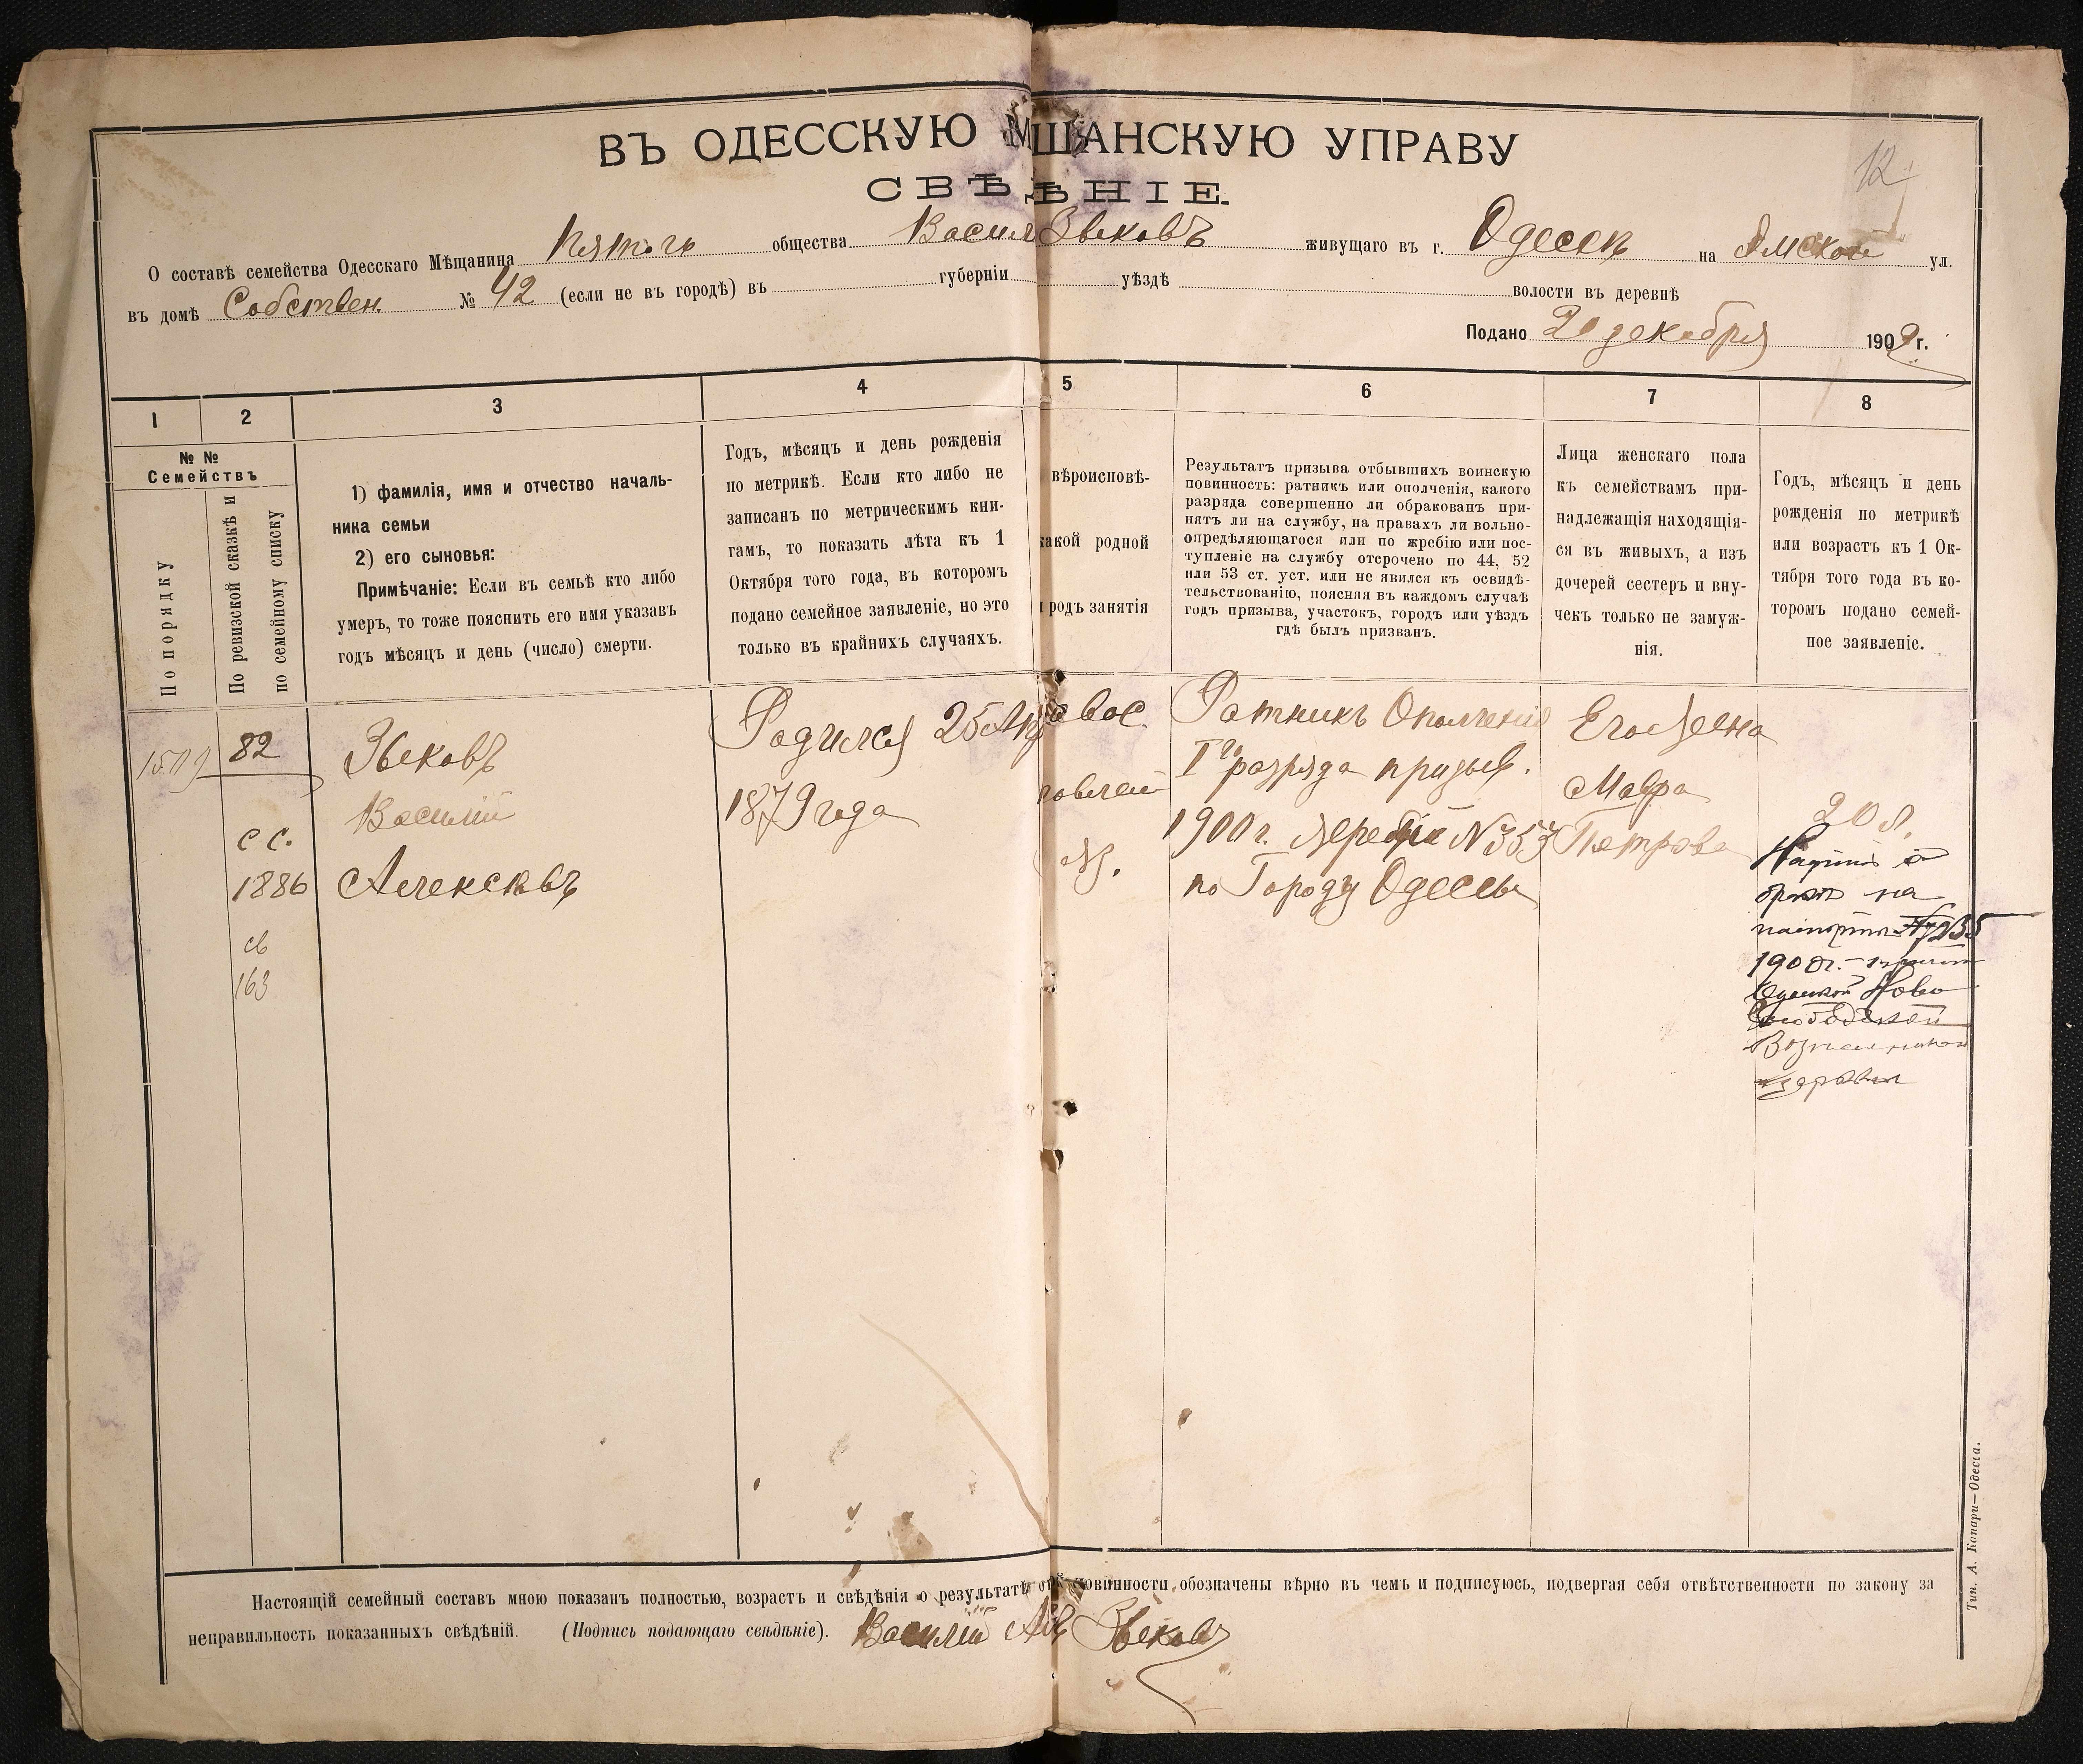 12
ВЪ ОДЕССКУЮ МЩАНСКУЮ УПРАВУ
СВѢДѢНІЕ.
О составѣ семейства Одесскаго Мѣщанина Пятого общества Васил Звековъ живущаго въ г. Одессѣ на Ямской ул.
въ домѣ Собствен. № 42 (если не въ городѣ) въ губерніи уѣздѣ волости въ деревнѣ
Подано 20 декабря 1902 г.
1 2 3 4 5 6 7 8
№ №
Семействъ
По порядку
По ревизской сказкѣ и
по семейному списку
1) фамилія, имя и отчество началь-
ника семьи
2) его сыновья:
Примѣчаніе: Если въ семьѣ кто либо
умеръ, то тоже пояснить его имя указавъ
годъ мѣсяцъ и день (число) смерти.
Годъ, мѣсяцъ и день рожденія
по метрикѣ. Если кто либо не
записанъ по метрическимъ кни-
гамъ, то показать лѣта къ 1
Октября того года, въ которомъ
подано семейное заявленіе, но это
только въ крайнихъ случаяхъ.
вѣроисповѣ-
акой родной
родъ занятія
Результатъ призыва отбывшихъ воинскую
повинность: ратникъ или ополченія, какого
разряда совершенно ли обракованъ при-
нятъ ли на службу, на правахъ ли вольно-
опредѣляющагося или по жребію или пос-
тупленіе на службу отсрочено по 44, 52
или 53 ст. уст. или не явился къ освидѣ-
тельствованію, поясняя въ каждомъ случаѣ
годъ призыва, участокъ, городъ или уѣздъ
гдѣ былъ призванъ.
Лица женскаго пола
къ семействамъ при-
надлежащія находящія-
ся въ живыхъ, а изъ
дочерей сестеръ и вну-
чекъ только не замуж-
нія.
Годъ, мѣсяцъ и день
рожденія по метрикѣ
или возрастъ къ 1 Ок-
тября того года въ ко-
торомъ подано семей-
ное заявленіе.
1509
82
с с.
1886
св
163
Звековъ
Василій
Алексѣевъ
Родился 25 Апр
1879 года
авос.
говлей
Ратникъ Ополченія
I го разряда призыв.
1900 г. Жребій N 353
по Городу Одессы
Его Жена
Мавра
Петрова
20 л.
браке на
1900 г.
Ново
Слободской
Настоящій семейный составъ мною показанъ полностью, возрастъ и свѣдѣнія о результатѣ повинности обозначены вѣрно въ чемъ и подписуюсь, подвергая себя отвѣтственности по закону за
неправильность показанныхъ свѣдѣній. (Подпись подающаго свѣдѣніе). Василій Звековъ
Тип. А. Капари—Одесса.